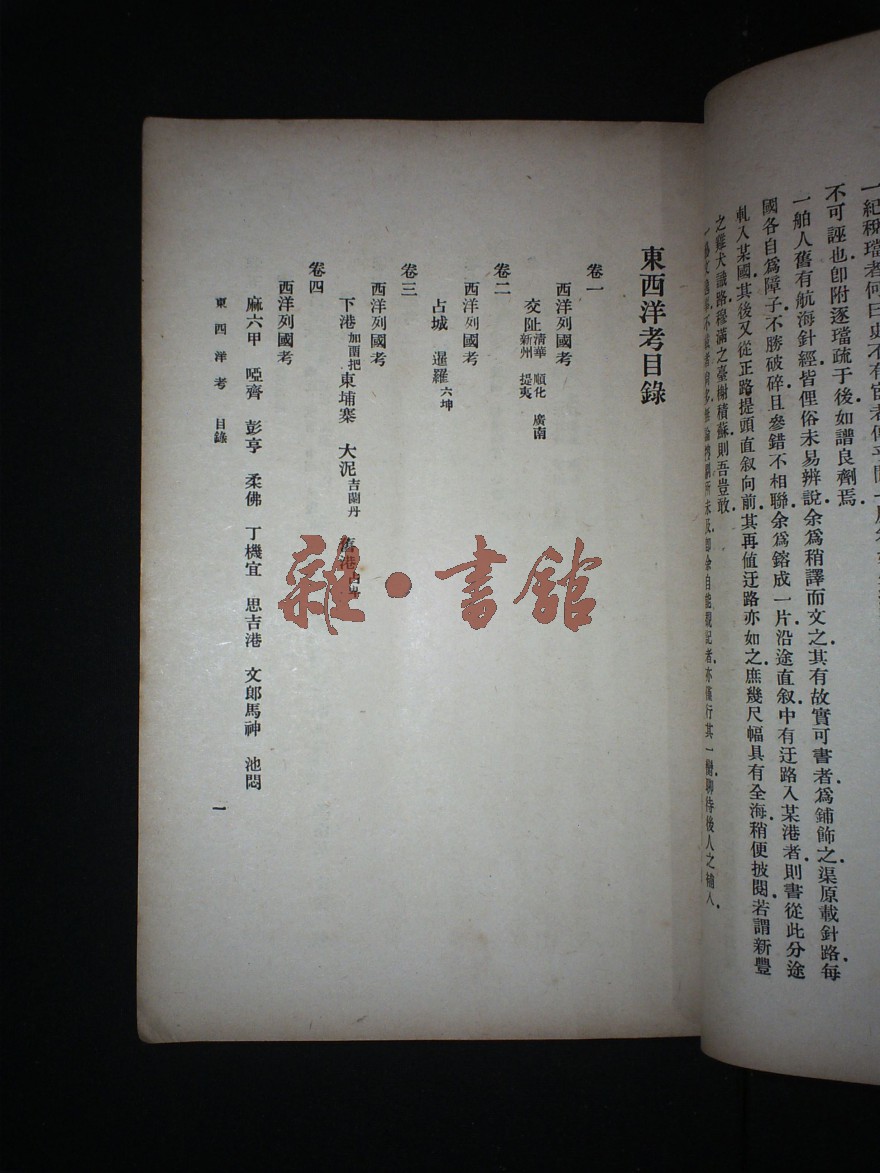 不可誣也卽附逐璫疏于後如譜良劑焉
一舶人舊有航海針經皆俚俗未易辨說余爲稍譯而文之其有故實可書者爲鋪飾之渠原載針路每
國各自爲障子不勝破碎且參錯不相聯余爲鎔成一片沿途直叙中有迂路入某港者則書從此分途
軋入某國其後又從正路提頭直叙向前其再値迂路亦如之庶幾尺幅具有全海稍便披閱若謂新豐
之雞犬識路穆滿之臺榭積蘇則吾豈敢
東西洋考目錄
卷一
西洋列國考
交阯 清華 順化 廣南 新州 提夷
卷二
西洋列國考
占城 暹羅 六坤
卷三
西洋列國考
下港 加㽞把 東埔寨 大泥 吉蘭丹 舊港
卷四
西洋列國考
麻六甲 啞齊 彭亨 柔佛 丁機宜 思吉港 文郎馬神 池悶
東西洋考 目錄
一
雜·書館